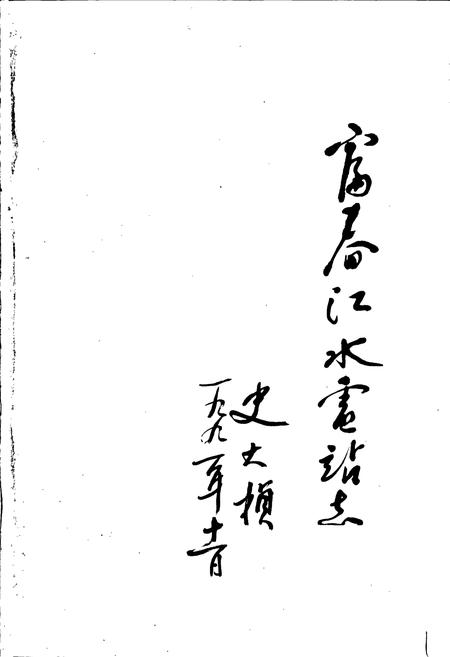 富春江水電站志
史大楨
一九九一年十一月